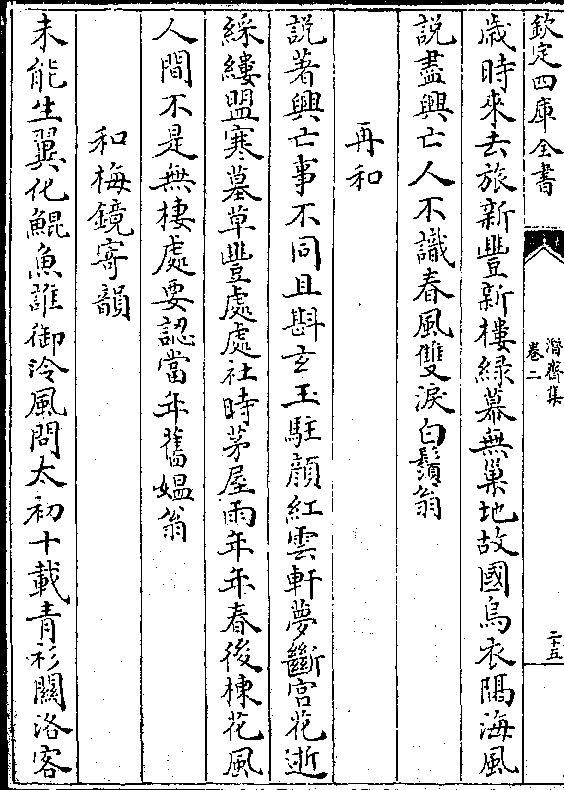 欽定四庫全書
潛齋集
卷二
二十五
歲時來去旅新豐新樓綠幕無巢地故國烏衣隔海風
說盡興亡人不識春風雙淚白鬚翁
再和
說著興亡事不同且斟玄玉駐顏紅雲軒夢斷宮花逝
綵縷盟寒墓草豐處處社時茅屋雨年年春後楝花風
人間不是無棲處要認當年舊媼翁
和梅鏡寄韻
未能生翼化鯤魚誰御泠風問太初十載青衫關洛客